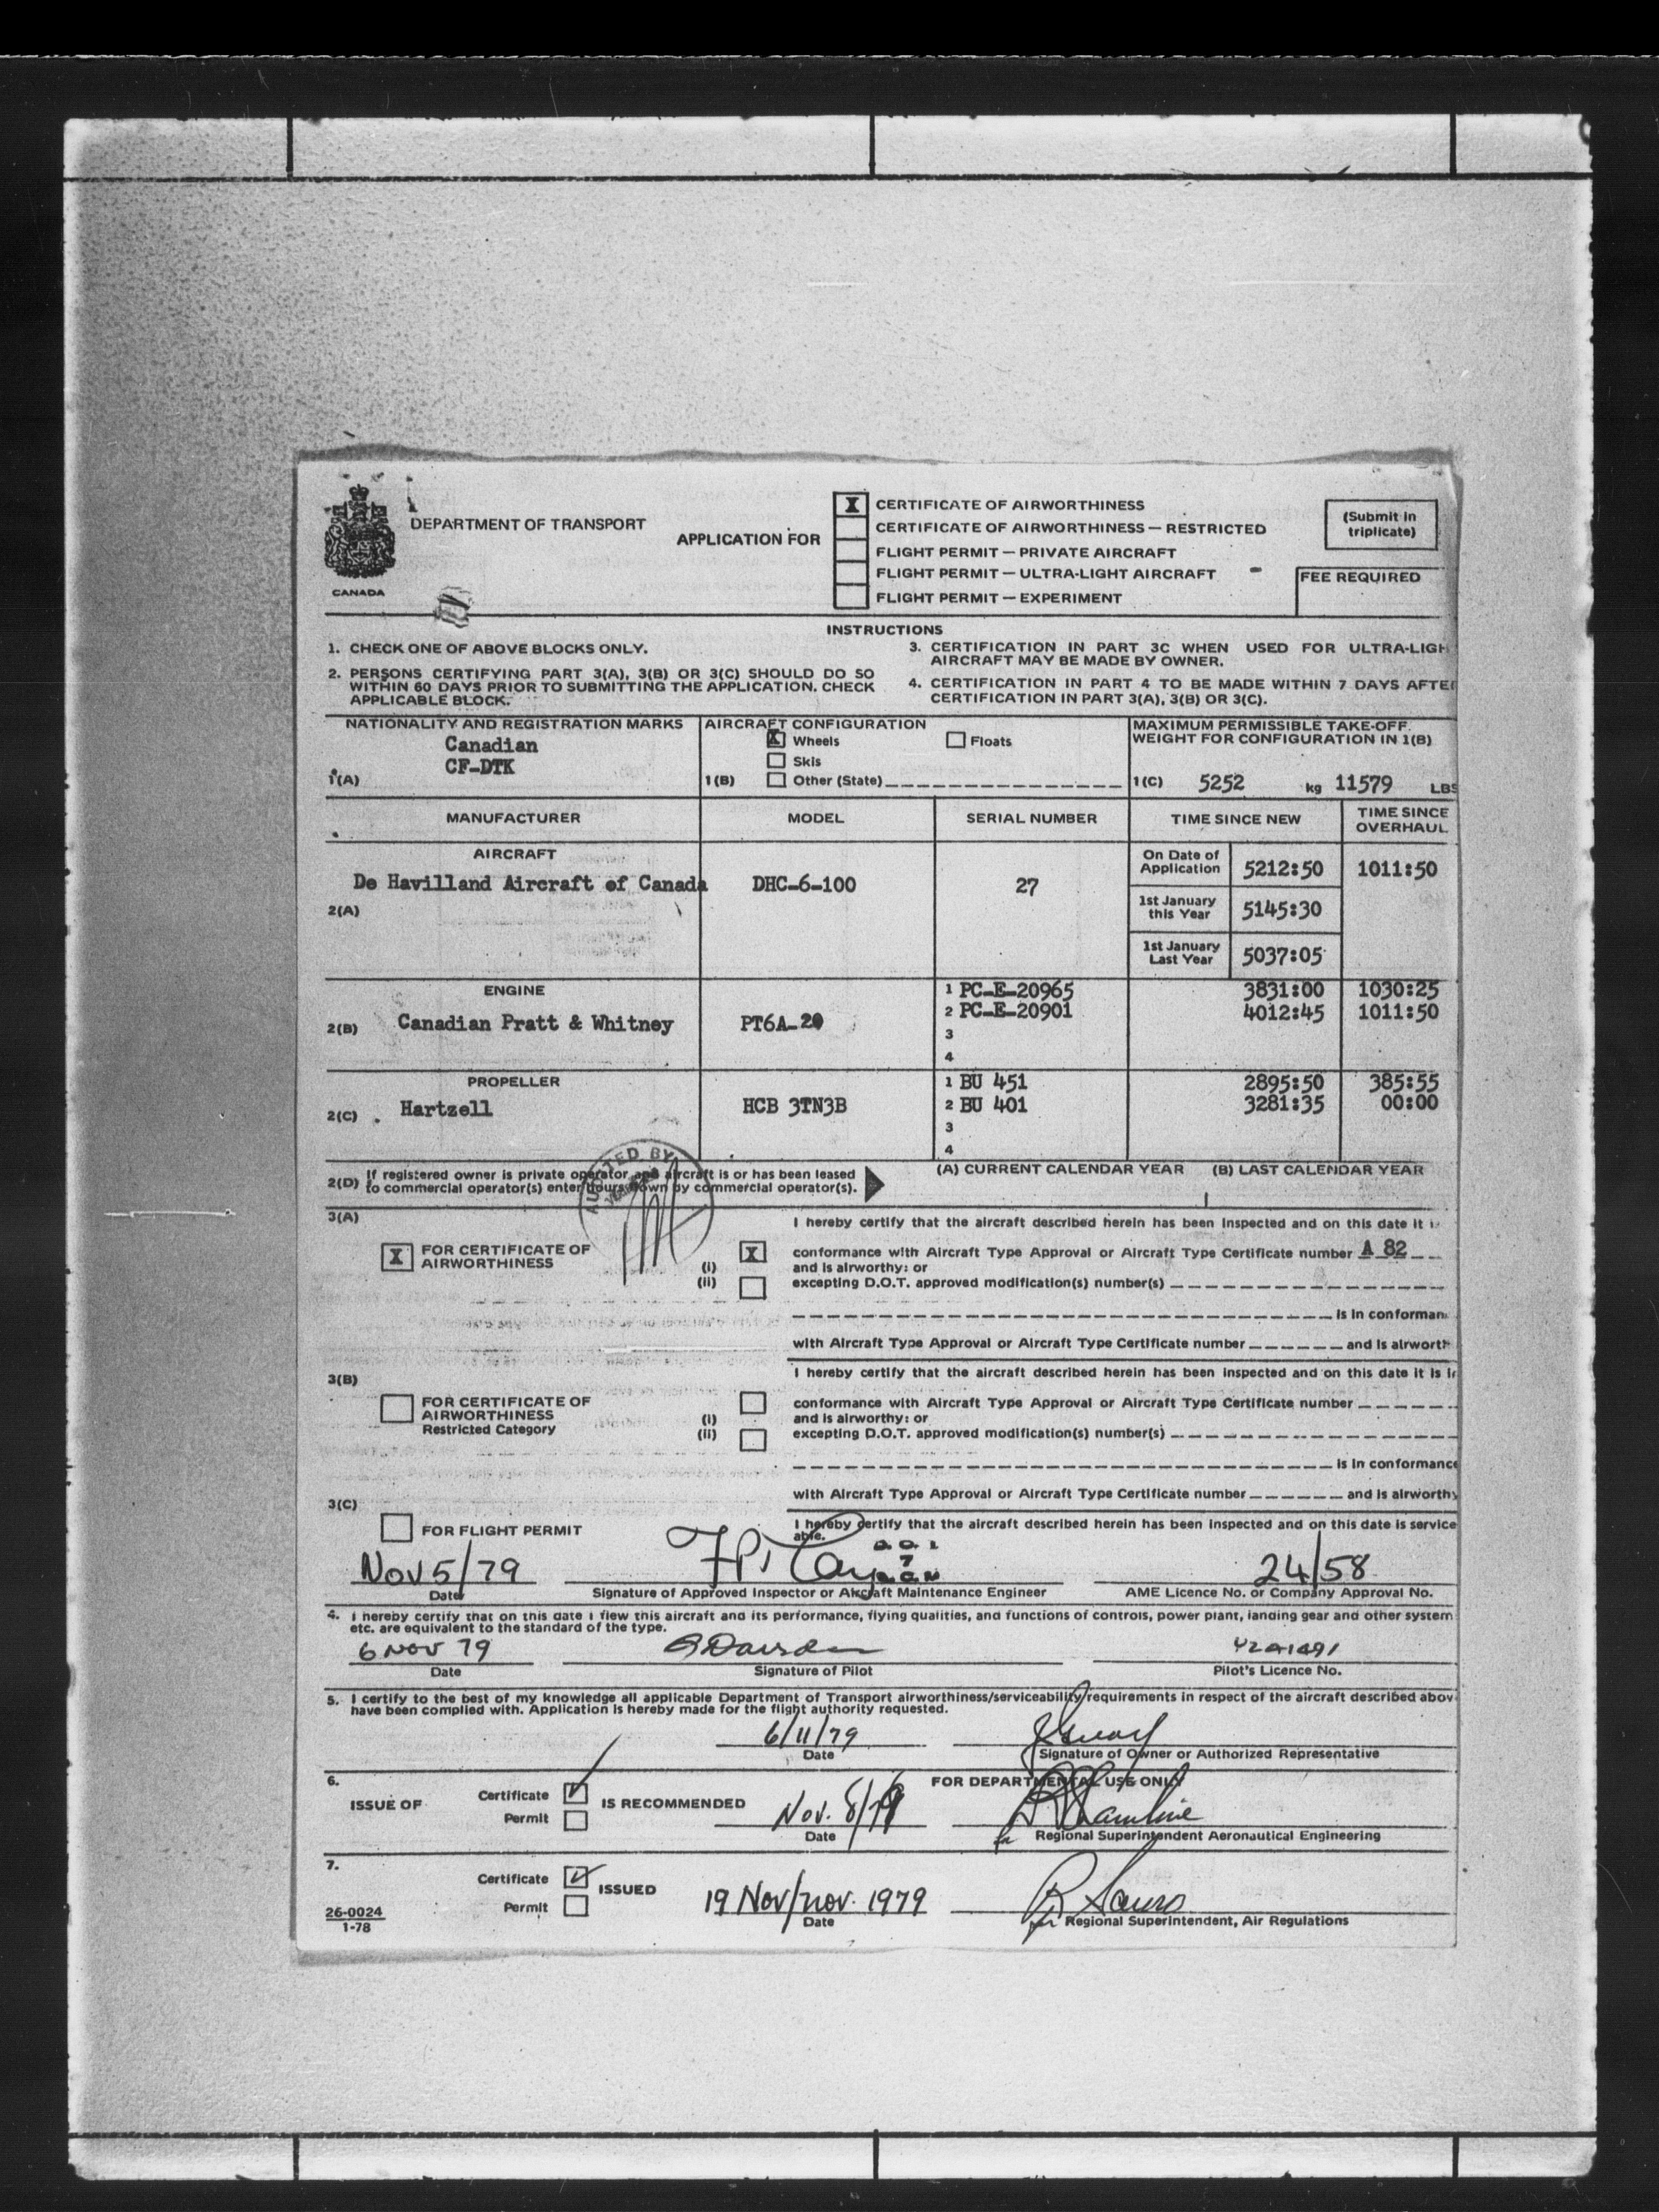 DEPARTMENT OF TRANSPORT
CANADA
APPLICATION FOR
X CERTIFICATE OF AIRWORTHINESS
CERTIFICATE OF AIRWORTHINESS — RESTRICTED
FLIGHT PERMIT — PRIVATE AIRCRAFT
FLIGHT PERMIT — ULTRA-LIGHT AIRCRAFT
FLIGHT PERMIT — EXPERIMENT
(Submit in
triplicate)
FEE REQUIRED
INSTRUCTIONS
1. CHECK ONE OF ABOVE BLOCKS ONLY.
2. PERSONS CERTIFYING PART 3(A), 3(B) OR 3(C) SHOULD DO SO
WITHIN 60 DAYS PRIOR TO SUBMITTING THE APPLICATION. CHECK
APPLICABLE BLOCK.
3. CERTIFICATION IN PART 3C WHEN USED FOR ULTRA-LIGH
AIRCRAFT MAY BE MADE BY OWNER.
4. CERTIFICATION IN PART 4 TO BE MADE WITHIN 7 DAYS AFTE
CERTIFICATION IN PART 3(A), 3(B) OR 3(C).
NATIONALITY AND REGISTRATION MARKS
Canadian
CF-DTK
1(A)
AIRCRAFT CONFIGURATION
X Wheels
Floats
Skis
1(B) Other (State)
MAXIMUM PERMISSIBLE TAKE-OFF
WEIGHT FOR CONFIGURATION IN 1(B)
1(C) 5252 kg 11579 LBS
MANUFACTURER MODEL SERIAL NUMBER TIME SINCE NEW TIME SINCE
OVERHAUL
AIRCRAFT
De Havilland Aircraft of Canada DHC-6-100 27
2(A)
On Date of
Application 5212:50 1011:50
1st January
this Year 5145:30
1st January
Last Year 5037:05
ENGINE
2(B) Canadian Pratt & Whitney PT6A-20
1 PC-E-20965 3831:00 1030:25
2 PC-E-20901 4012:45 1011:50
3
4
PROPELLER
2(C) Hartzell HCB 3TN3B
1 BU 451 2895:50 385:55
2 BU 401 3281:35 00:00
3
4
2(D) If registered owner is private operator and aircraft is or has been leased
to commercial operator(s) enter hours flown by commercial operator(s).
(A) CURRENT CALENDAR YEAR (B) LAST CALENDAR YEAR
3(A)
X FOR CERTIFICATE OF
AIRWORTHINESS
I hereby certify that the aircraft described herein has been inspected and on this date it i
(i) X conformance with Aircraft Type Approval or Aircraft Type Certificate number A 82
and is airworthy: or
(ii) excepting D.O.T. approved modification(s) number(s)
is in conforman
with Aircraft Type Approval or Aircraft Type Certificate number and is airworth
3(B)
FOR CERTIFICATE OF
AIRWORTHINESS
Restricted Category
I hereby certify that the aircraft described herein has been inspected and on this date it is in
(i) conformance with Aircraft Type Approval or Aircraft Type Certificate number
and is airworthy: or
(ii) excepting D.O.T. approved modification(s) number(s)
is in conformance
with Aircraft Type Approval or Aircraft Type Certificate number and is airworthy
3(C)
FOR FLIGHT PERMIT
I hereby certify that the aircraft described herein has been inspected and on this date is service
able.
Nov 5/79 24/58
Date Signature of Approved Inspector or Aircraft Maintenance Engineer AME Licence No. or Company Approval No.
4. I hereby certify that on this date I flew this aircraft and its performance, flying qualities, and functions of controls, power plant, landing gear and other system
etc. are equivalent to the standard of the type.
6 NOV 79
Date Signature of Pilot Pilot's Licence No.
5. I certify to the best of my knowledge all applicable Department of Transport airworthiness/serviceability requirements in respect of the aircraft described abov
have been complied with. Application is hereby made for the flight authority requested.
6/11/79
Date Signature of Owner or Authorized Representative
6. FOR DEPARTMENTAL USE ONLY
ISSUE OF Certificate IS RECOMMENDED Nov. 8/79
Permit
Date Regional Superintendent Aeronautical Engineering
7.
Certificate ISSUED 19 Nov/nov. 1979
Permit
Date for Regional Superintendent, Air Regulations
26-0024
1-78